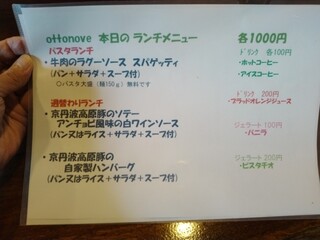 ottonove 本日の ランチメニュー 各1000円
パスタランチ
ドリンク 各100円
・牛肉のラグーソース スパゲッティ
・ホットコーヒー
(パン+サラダ+スープ付)
・アイスコーヒー
○パスタ大盛(麺150g)無料です
ドリンク 200円
週替わりランチ
・ブラッドオレンジジュース
・京丹波高原豚のソテー
アンチョビ風味の白ワインソース
ジェラート 100円
(パン又はライス+サラダ+スープ付)
・バニラ
・京丹波高原豚の
ジェラート 200円
自家製ハンバーグ
・ピスタチオ
(パン又はライス+サラダ+スープ付)